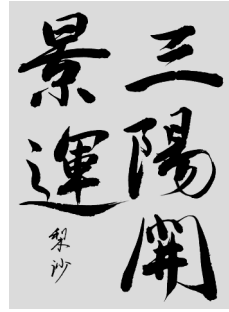 三陽開
景運
梨沙